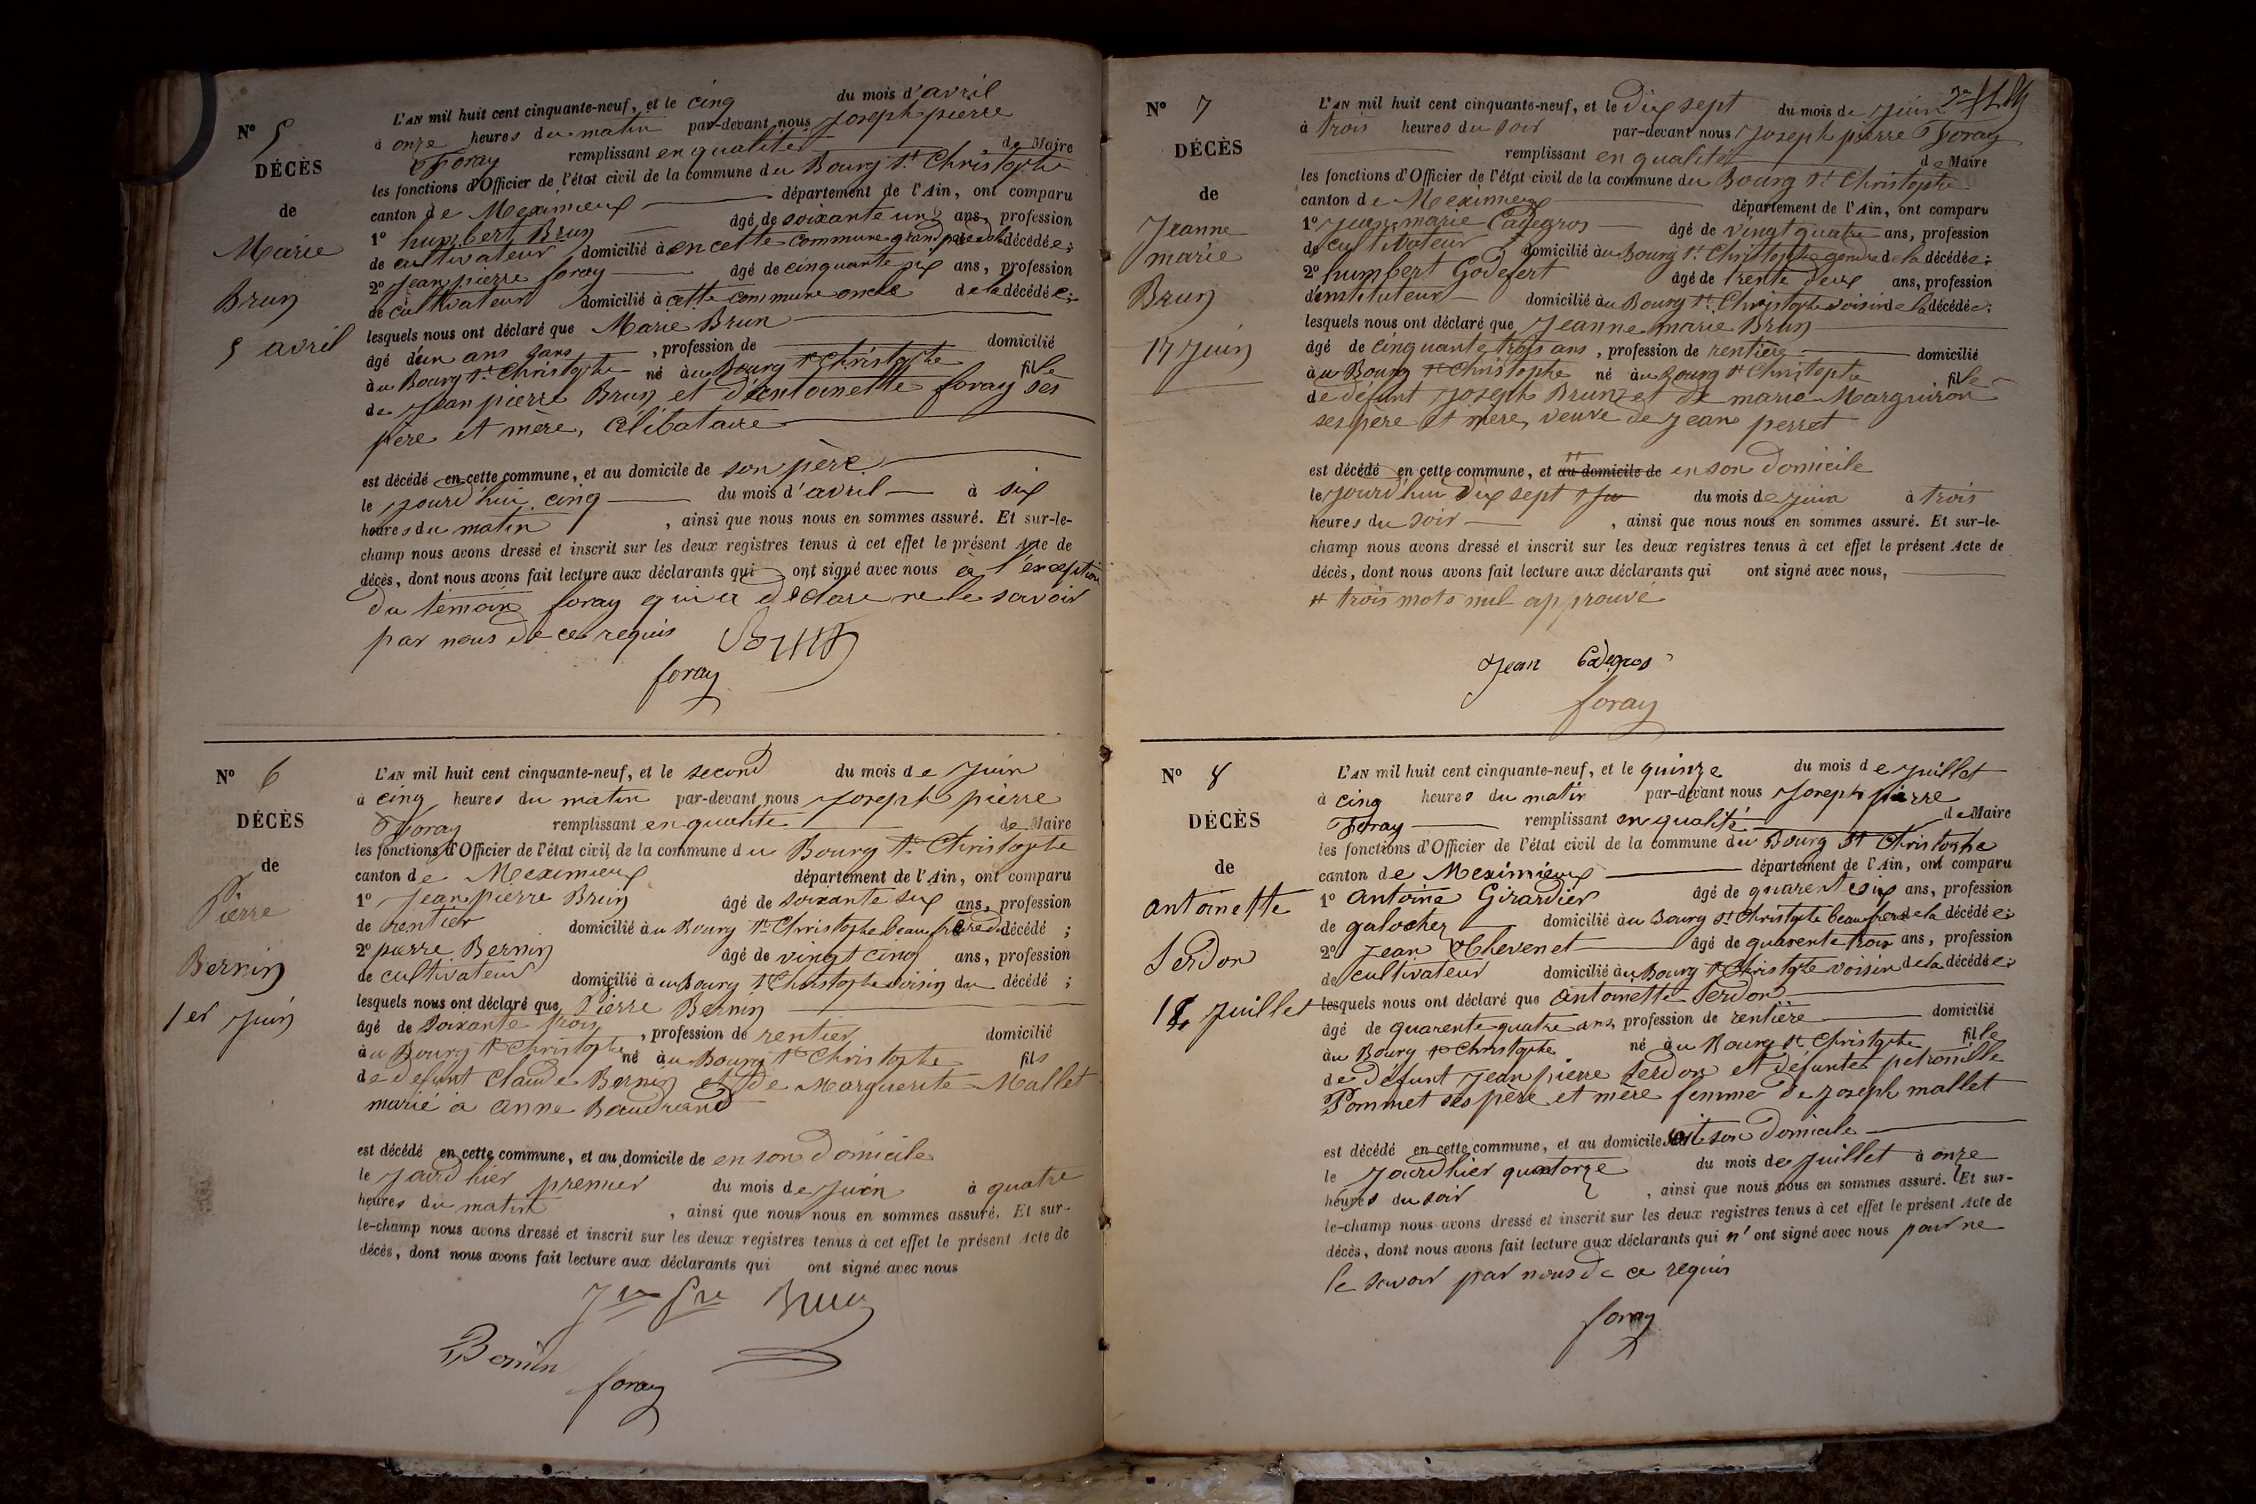 N° 5
DÉCÈS
de
Marie
Brun
5 avril
L'AN mil huit cent cinquante-neuf, et le cinq du mois d'avril
à onze heures du matin par-devant nous Joseph pierre
Foray remplissant en qualité de Maire
les fonctions d'Officier de l'état civil de la commune du Bourg St Christophe
canton de Meximieux département de l'Ain, ont comparu
1° humbert Brun âgé de soixante un ans, profession
de cultivateur domicilié à en cette commune grand père de la décédée;
2° Jean pierre foray âgé de cinquante six ans, profession
de cultivateur domicilié à cette commune oncle de la décédée;
lesquels nous ont déclaré que Marie Brun
âgé d'un ans sans, profession de domicilié
à u Bourg St Christophe né à u Bourg St Christophe fille
de Jean pierre Brun et d'antoinette foray ses
père et mère, célibataire
est décédé en cette commune, et au domicile de son père
le jourd'hui cinq du mois d'avril à six
heures du matin, ainsi que nous nous en sommes assuré. Et sur-le-
champ nous avons dressé et inscrit sur les deux registres tenus à cet effet le présent Acte de
décès, dont nous avons fait lecture aux déclarants qui ont signé avec nous à l'exception
du témoin foray qui a déclaré ne le savoir
par nous de ce requis Brun
foray
N° 6
DÉCÈS
de
Pierre
Bernin
1er Juin
L'AN mil huit cent cinquante-neuf, et le second du mois de Juin
à cinq heures du matin par-devant nous Joseph pierre
Foray remplissant en qualité de Maire
les fonctions d'Officier de l'état civil de la commune du Bourg St Christophe
canton de Meximieux département de l'Ain, ont comparu
1° Jean pierre Brun âgé de soixante six ans, profession
de rentier domicilié à u Bourg St Christophe beau frère du décédé;
2° pierre Bernin âgé de vingt cinq ans, profession
de cultivateur domicilié à u Bourg St Christophe voisin du décédé;
lesquels nous ont déclaré que Pierre Bernin
âgé de soixante trois, profession de rentier domicilié
à u Bourg St Christophe né à u Bourg St Christophe fils
de défunt Claude Bernin et de Marguerite Mallet
marié à anne Baudrand
est décédé en cette commune, et au domicile de en son domicile
le jourd'hier premier du mois de Juin à quatre
heures du matin, ainsi que nous nous en sommes assuré. Et sur-
le-champ nous avons dressé et inscrit sur les deux registres tenus à cet effet le présent Acte de
décès, dont nous avons fait lecture aux déclarants qui ont signé avec nous
Brun
Bernin
foray
N° 7
DÉCÈS
de
Jeanne
marie
Brun
17 Juin
L'AN mil huit cent cinquante-neuf, et le dix sept du mois de Juin
à trois heures du soir par-devant nous Joseph pierre Foray
remplissant en qualité de Maire
les fonctions d'Officier de l'état civil de la commune du Bourg St Christophe
canton de Meximieux département de l'Ain, ont comparu
1° Jean marie Cadegros âgé de vingt quatre ans, profession
de cultivateur domicilié à u Bourg St Christophe gendre de la décédée;
2° humbert Godefert âgé de trente deux ans, profession
d'instituteur domicilié à u Bourg St Christophe voisin de la décédée;
lesquels nous ont déclaré que Jeanne marie Brun
âgé de cinquante trois ans, profession de rentière domicilié
à u Bourg St Christophe né à u Bourg St Christophe fille
de défunt Joseph Brun et de marie Marguiron
ses père et mère, veuve de Jean perret
est décédé en cette commune, et au domicile de en son domicile
le jourd'hui dix sept du mois de Juin à trois
heures du soir, ainsi que nous nous en sommes assuré. Et sur-le-
champ nous avons dressé et inscrit sur les deux registres tenus à cet effet le présent Acte de
décès, dont nous avons fait lecture aux déclarants qui ont signé avec nous,
trois mots nul approuvé
Jean Cadegros
foray
N° 8
DÉCÈS
de
antoinette
Serdon
juillet
L'AN mil huit cent cinquante-neuf, et le quinze du mois de Juillet
à cinq heures du matin par-devant nous Joseph pierre
Foray remplissant en qualité de Maire
les fonctions d'Officier de l'état civil de la commune du Bourg St Christophe
canton de Meximieux département de l'Ain, ont comparu
1° antoine Girardier âgé de quarente six ans, profession
de galocher domicilié à u Bourg St Christophe beau frère de la décédée;
2° Jean Chevenet âgé de quarente trois ans, profession
de cultivateur domicilié à u Bourg St Christophe voisin de la décédée;
lesquels nous ont déclaré que antoinette Serdon
âgé de quarente quatre ans, profession de rentière domicilié
à u Bourg St Christophe né à u Bourg St Christophe fille
de défunt Jean pierre Serdon et défunte petronille
Pommet ses père et mère femme de Joseph mallet
est décédé en cette commune, et au domicile son domicile
le jourd'hier quatorze du mois de Juillet à onze
heures du soir, ainsi que nous nous en sommes assuré. Et sur-
le-champ nous avons dressé et inscrit sur les deux registres tenus à cet effet le présent Acte de
décès, dont nous avons fait lecture aux déclarants qui n'ont signé avec nous pour ne
le savoir par nous de ce requis
foray